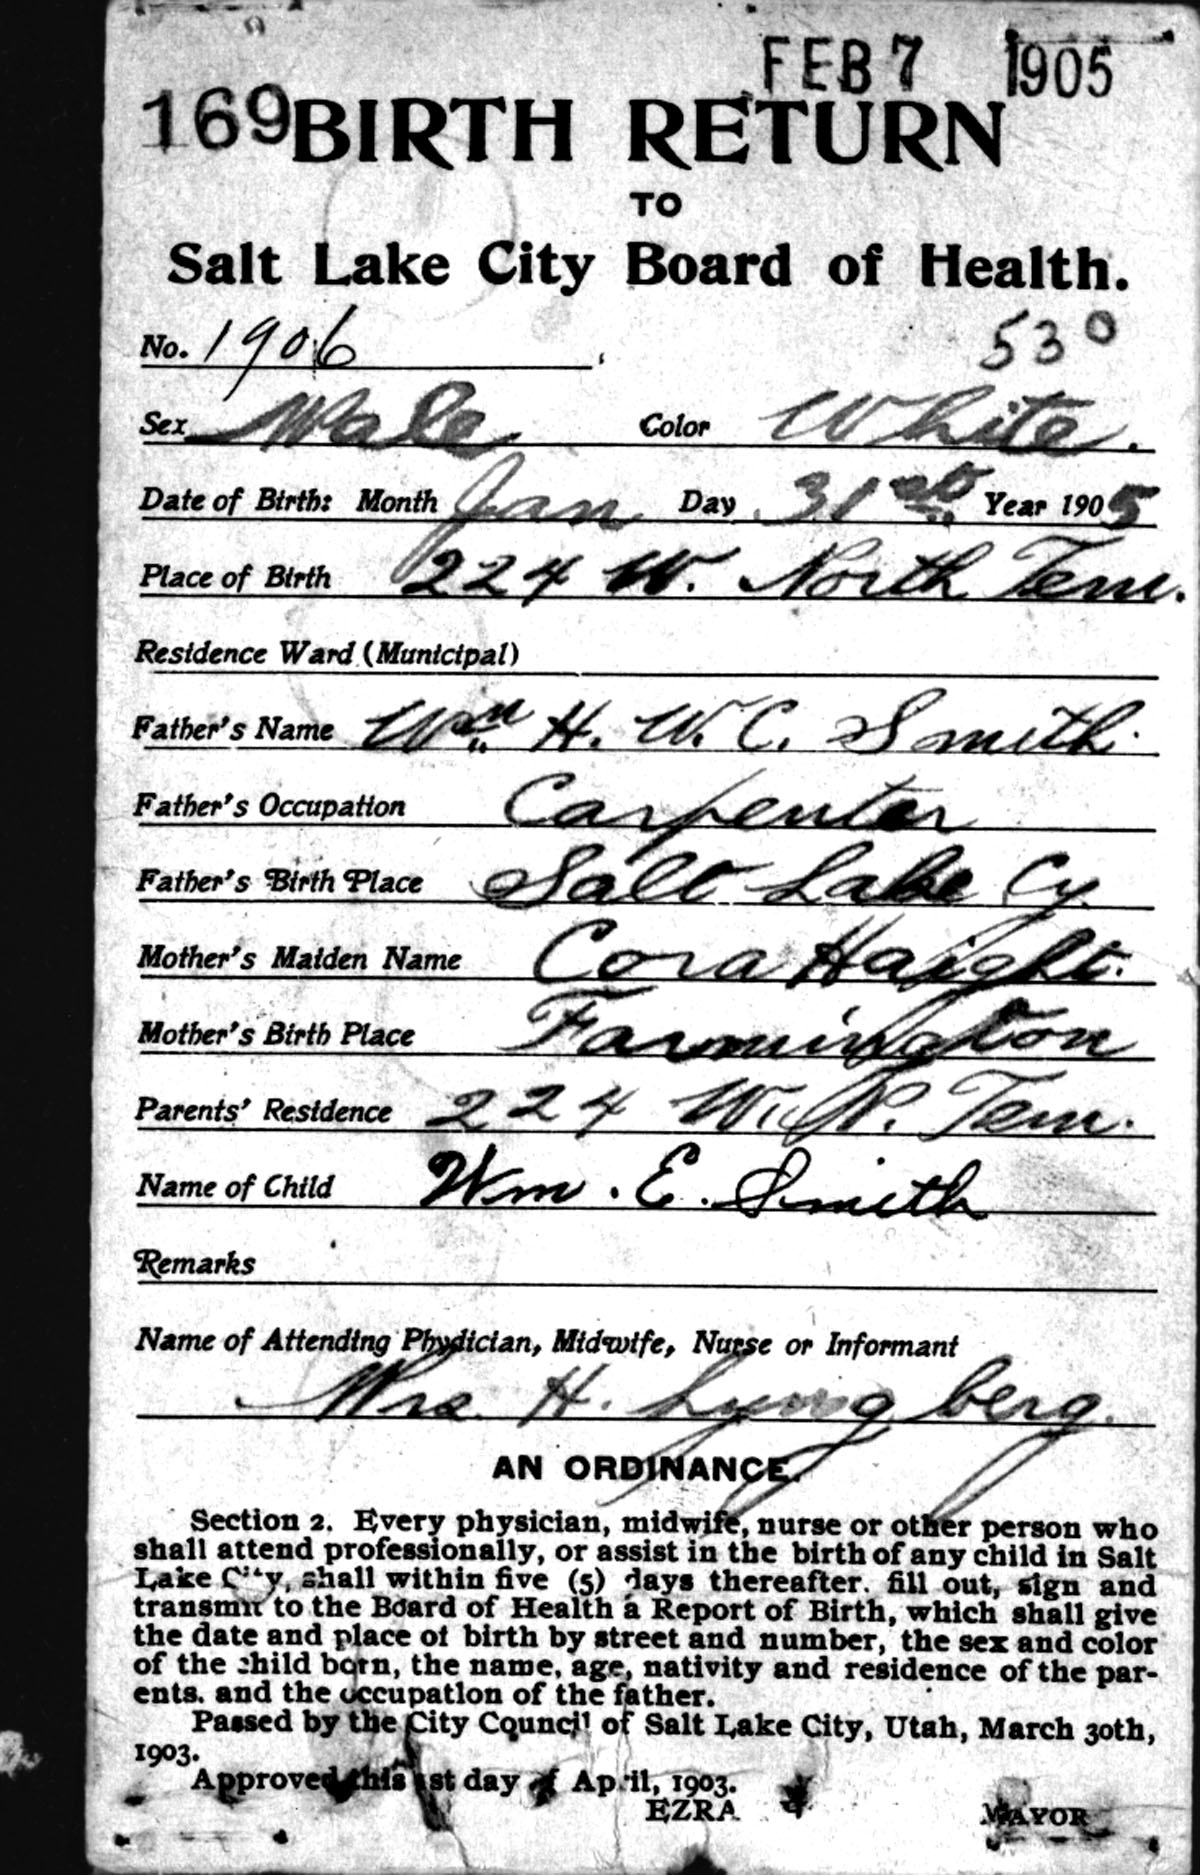 FEB 7 1905
169 BIRTH RETURN
TO
Salt Lake City Board of Health.
No. 1906 530
Sex Male Color White.
Date of Birth: Month Jan Day 31st Year 1905
Place of Birth 224 W. North Tem.
Residence Ward (Municipal)
Father's Name Wm H. W. C. Smith.
Father's Occupation Carpenter
Father's Birth Place Salt Lake Cy.
Mother's Maiden Name Cora Haight.
Mother's Birth Place Farmington
Parents' Residence 224 W. N. Tem.
Name of Child Wm. E. Smith
Remarks
Name of Attending Phydician, Midwife, Nurse or Informant
Mrs. H. Lyngberg.
AN ORDINANCE.
Section 2. Every physician, midwife, nurse or other person who
shall attend professionally, or assist in the birth of any child in Salt
Lake City, shall within five (5) days thereafter. fill out, sign and
transmit to the Board of Health a Report of Birth, which shall give
the date and place of birth by street and number, the sex and color
of the child born, the name, age, nativity and residence of the par-
ents. and the occupation of the father.
Passed by the City Council of Salt Lake City, Utah, March 30th,
1903.
Approved this 1st day of April, 1903.
EZRA MAYOR